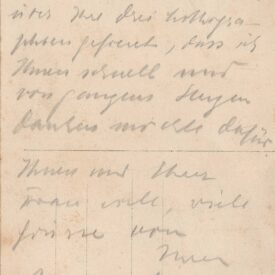 über Ihre drei Lithogra-
phien gefreut, dass ich
Ihnen schnell und
von ganzem Herzen
danken möchte dafür
Ihnen und Ihrer
Frau viele, viele
Grüsse von
Ihrem